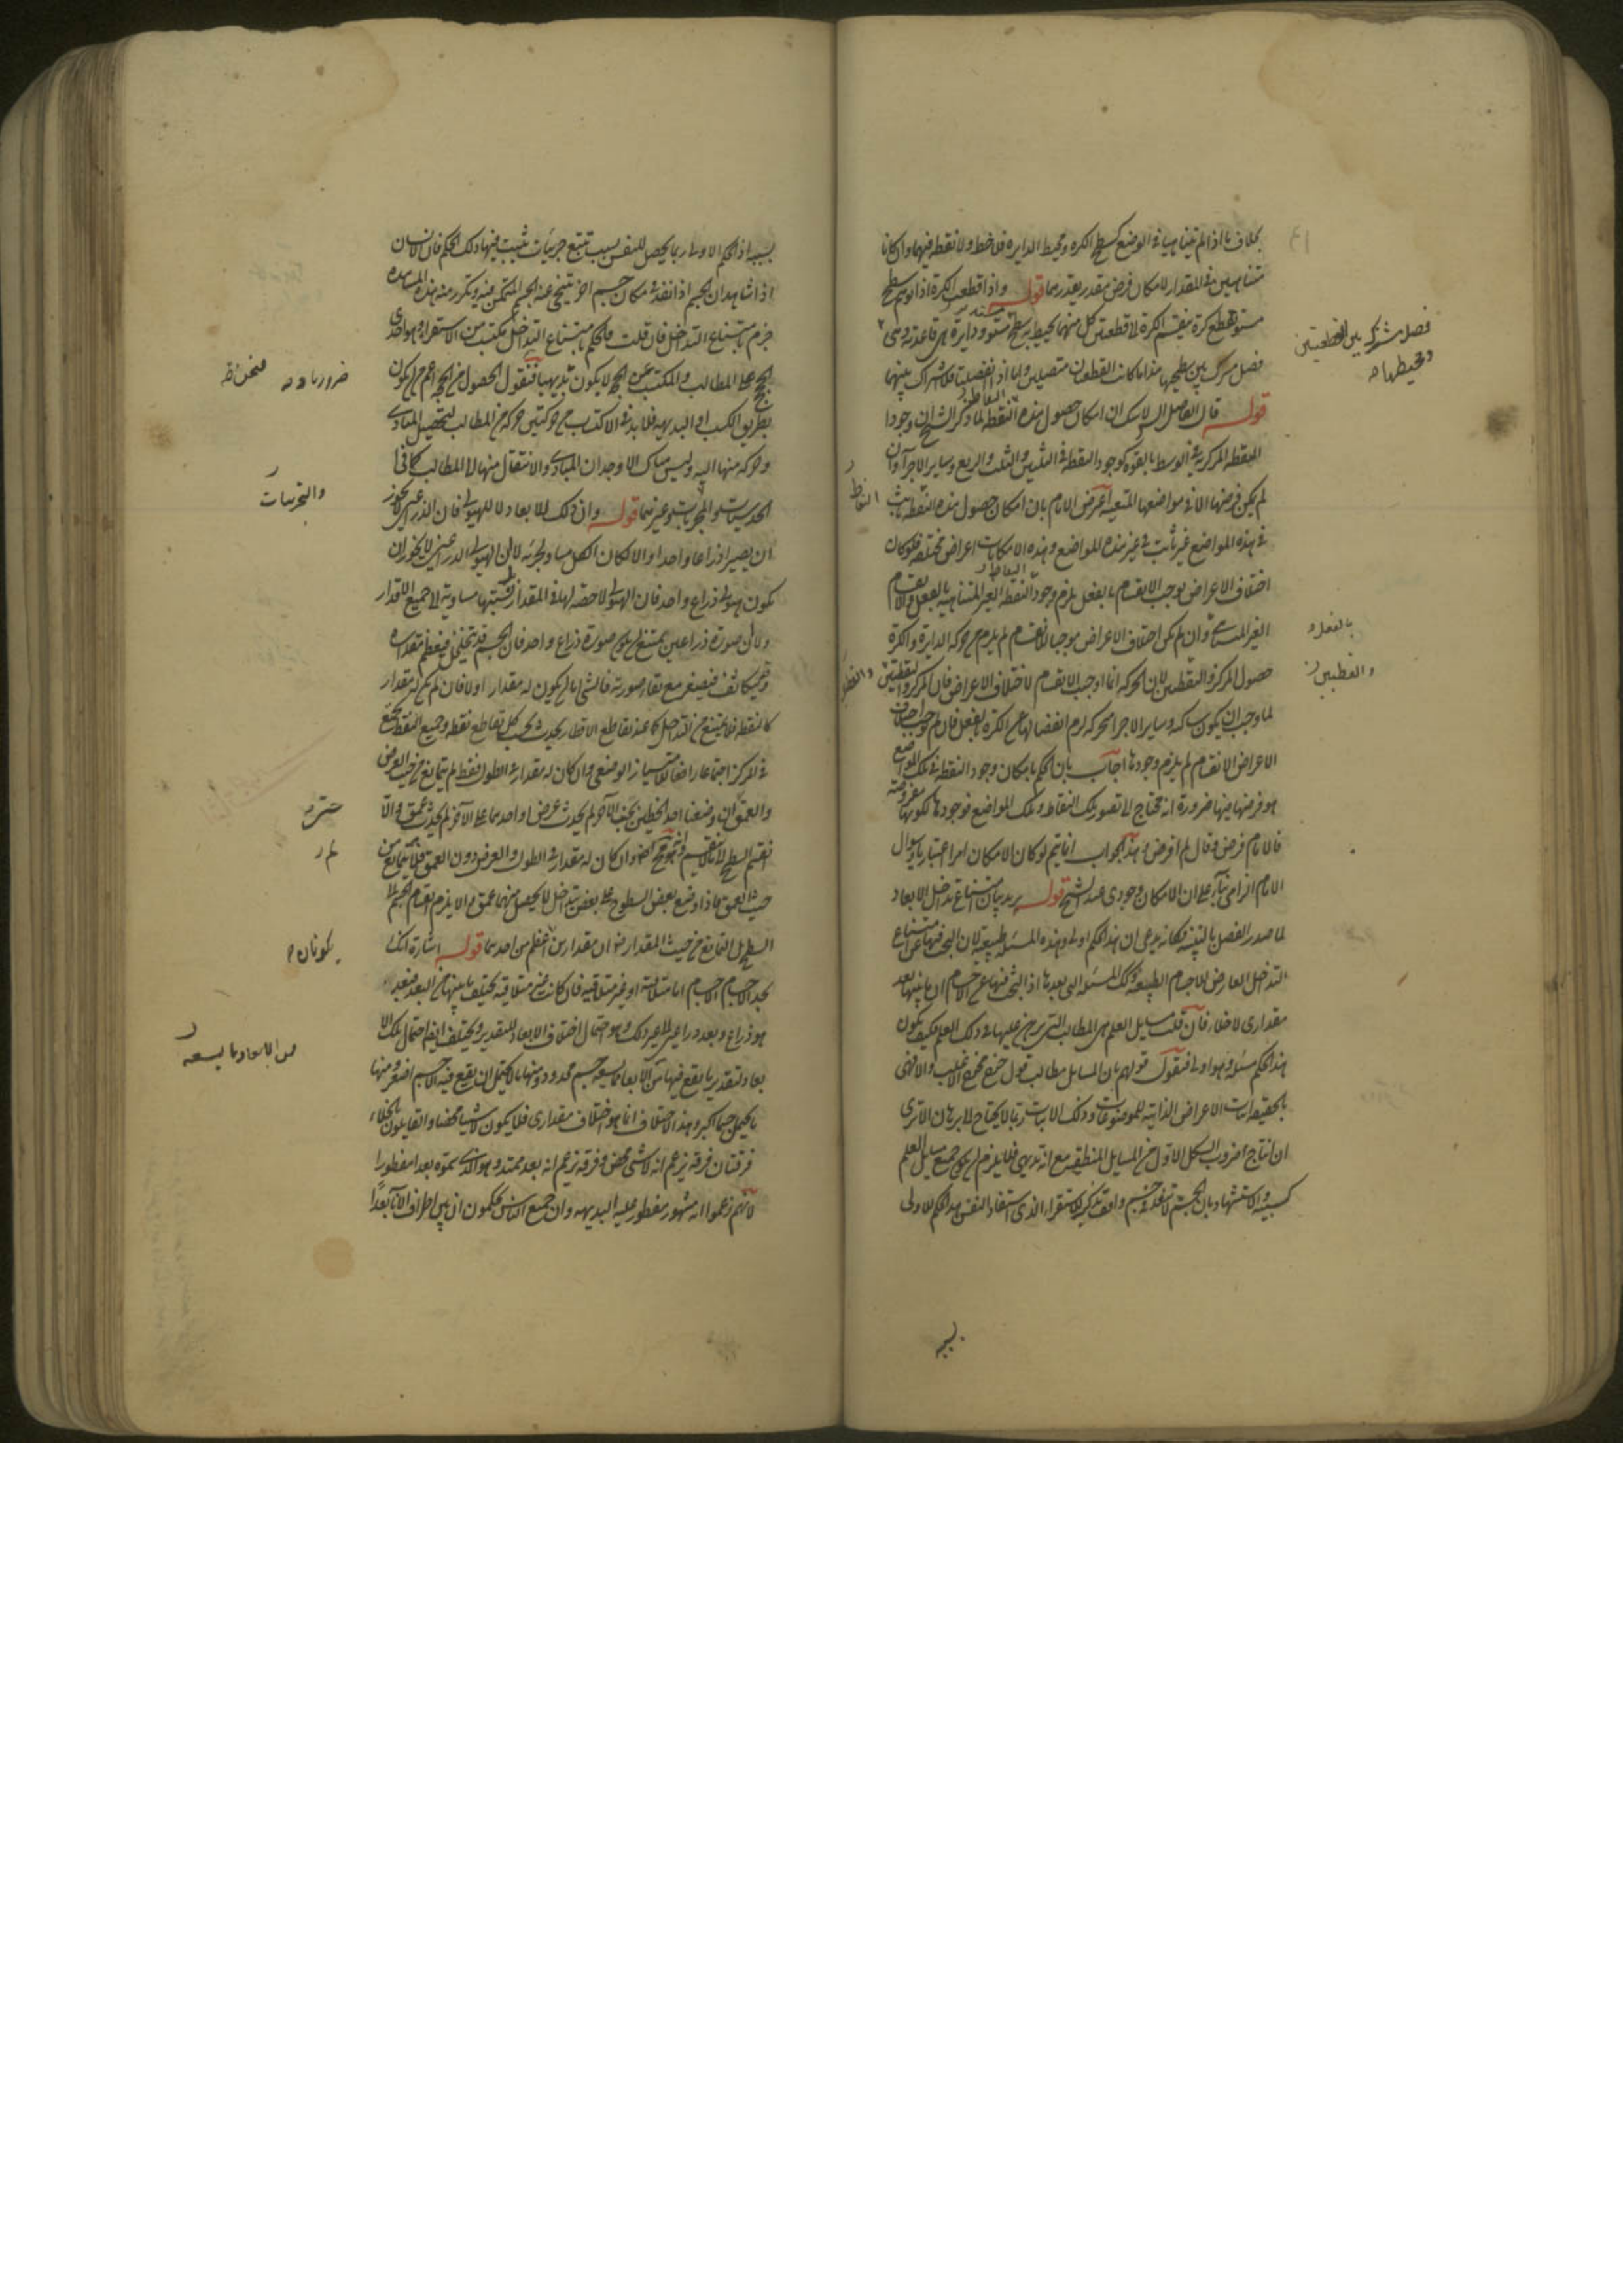 بخلاف ما اذا لم يتناهيا في الوضع كسطح الكره ومحيط الدايرة فلا خط ولا نقطة فيهما وان كانا
متناهيين في المقدار لامكان فرض مقدر يقدرهما قوله واذا قطعت الكرة اذا توهم سطح
مستو يقطع كرة ينقسم الكرة الى قطعتين كل منهما يحيط به سطح مستو ودايرة هي قاعدته وهي
فصل مشترك بين سطحيهما هذا ما كانت القطعتان متصلين واما اذا انفصلتا فلا اشتراك بينهما
فصل مشترك بين القطعتين
ومحيطهما
قوله قال الفاضل الشارح لاشك ان امكان حصول هذه النقطة لما ذكر الشيخ ان وجود
النقطة المركزية في الوسط بالقوه كوجود النقطة في الثلثين والثلث والربع وساير الاجزاء وان
لم يكن فرضها الا في مواضعها المتعينة اعترض الامام بان امكان حصول هذه النقطة ثابت
النقاط
في هذه المواضع غير ثابت في غير هذه المواضع وهذه الامكانات اعراض مختلفة فلو كان
اختلاف الاعراض يوجب الانقسام بالفعل يلزم وجود النقطة الغير المتناهية بالفعل والانقسام
الغير المتناهي وان لم يكن اختلاف الاعراض موجبا للانقسام لم يلزم من حركة الدايرة والكرة
بالفعل و
حصول المركز والنقطتين لان الحركة انما اوجبت الانقسام لاختلاف الاعراض فان المركز والنقطتين
والقطبين
لما وجب ان يكون ساكنه وساير الاجزاء متحركه لزم انفصالها عن الكرة بالفعل فان لم يوجب اختلاف
الاعراض الانقسام لم يلزم وجودها اجاب بان الحكم بامكان وجود النقطة في تلك المواضع
هو فرضها فيها ضرورة انه محتاج الى تصور تلك النقاط وتلك المواضع فوجودها لكونها مفروضة
فالامام فرض وقال لم افرض وهذا الجواب انما يتم لو كان الامكان امرا اعتباريا وسؤال
الامام الزامي بناء على ان الامكان وجودي عند الشيخ قوله يريد بيان امتناع تداخل الابعاد
لما صدر الفصل بالتنبيه وكانه يدعي ان هذا الحكم اولي وهذه المسئلة طبيعية لان البحث فيها عن امتناع
التداخل العارض للاجسام الطبيعية وكذلك المسئلة التي بعدها اذ البحث فيها عن الاجسام ان ما بينها بعد
مقداري لا خلاء فان قلت مسايل العلم هي المطالب التي يبرهن عليها في ذلك العلم فكيف يكون
هذا الحكم مسئلة وهو اولي فنقول قولهم بان المسايل مطالب قول خرج مخرج الاغلب والا فهي
بالحقيقة اثبات الاعراض الذاتية للموضوعات وذلك الاثبات ربما لا يحتاج الى برهان الا ترى
ان انتاج ضروب الشكل الاول من المسايل المنطقية مع انه بديهي فلا يلزم ان يكون جميع مسايل العلم
كسبية والاستشهاد بان الجسم لا ينفذ في جسم واقف تذكير للاستقراء الذي استفاد النفس هذا الحكم الاولي
بسببه
بسببه اذ الحكم الاولي ربما يحصل للنفس بسبب تتبع جزئيات يثبت فيها ذلك الحكم فان الانسان
اذا شاهد ان الجسم اذا انفذ في مكان جسم اخر يتنحى عنه الجسم المتمكن فيه وتكرر منه هذه المشاهدة
جزم بامتناع التداخل فان قلت فالحكم بامتناع التداخل مكتسب من الاستقراء وهو احدى
الحجج على المطالب والمكتسب عن الحجج لا يكون بديهيا فنقول الحصول من الحجة اعم من ان يكون
بطريق الكسب او البديهة فلا بد في الاكتساب من حركتين حركة من المطالب لتحصيل المبادى
وحركة منها اليه وليس هناك الا وجدان المبادى والانتقال منها الى المطالب كما في
الحدسيات والمجربات وغيرهما قوله وان ذلك للابعاد لا للهيولى فان الذراعين لا يجوز
والتجربيات
ان يصيرا ذراعا واحدا والا لكان الكل مساويا لجزئه لا لان الهيولى الذراعين لا يجوز ان
يكون هيولى ذراع واحد فان الهيولى لا حصة لها في المقدار ونسبتها مساوية الى جميع الاقدار
ولا ان صورة ذراعين يمتنع ان يكون صورة ذراع واحد فان الجسم قد يتخلخل فيعظم مقداره
وقد يتكاثف فيصغر مع بقاء صورته فالشيء اما ان يكون له مقدار او لا فان لم يكن له مقدار
كالنقطة فلا يمتنع من التداخل كما عند تقاطع الاقطار يحدث بحسب كل تقاطع نقطة وجميع النقط تجتمع
في المركز اجتماعا رافعا للامتياز الوضعي وان كان له مقدار في الطول فقط لم يتمانع من حيث العرض
والعمق وان وضعنا احد الخطين بجنب الآخر لم يحدث عرض او احدهما على الآخر لم يحدث عمق والا
لم
انقسم السطح لانقسام وان كان له مقدار في الطول والعرض دون العمق فلا يتمانع من
حيث العمق فاذا وضع بعض السطوح على بعض يتداخل لا يحصل منهما عمق والا يلزم انقسام الجسم الى
السطوح بل التمانع من حيث المقدار فهو ان مقدارين اعظم من احدهما قوله اشارة انك
يكونان
تجد الاجسام الاجسام اما متلاقية او غير متلاقية فان كانت غير متلاقية يختلف ما بينها من البعد فبعد
هو ذراع وبعد ذراعين الى غير ذلك وهو احتمال اختلاف الابعاد للتقدير ويختلف ايضا احتمال تلك الا
من الابعاد ما يسعه
بعاد لتقدير ما يقع فيها من الابعاد ما يسعه جسم محدود ومنها ما لا يحتمل ان يقع فيه الا جسم اصغر ومنها
ما يحتمل جسما اكبر وهذا الاختلاف انما هو اختلاف مقداري فلا يكون لا شيئا محضا والقايلون بالخلاء
فرقتان فرقة تزعم انه لا شيء محض وفرقة تزعم انه بعد ممتد وهو الذي سموه بعدا مفطورا
لانهم زعموا انه مشهور مفطور عليه البديهه وان جميع الناس يحكمون ان بين اطراف الاناء بعدا